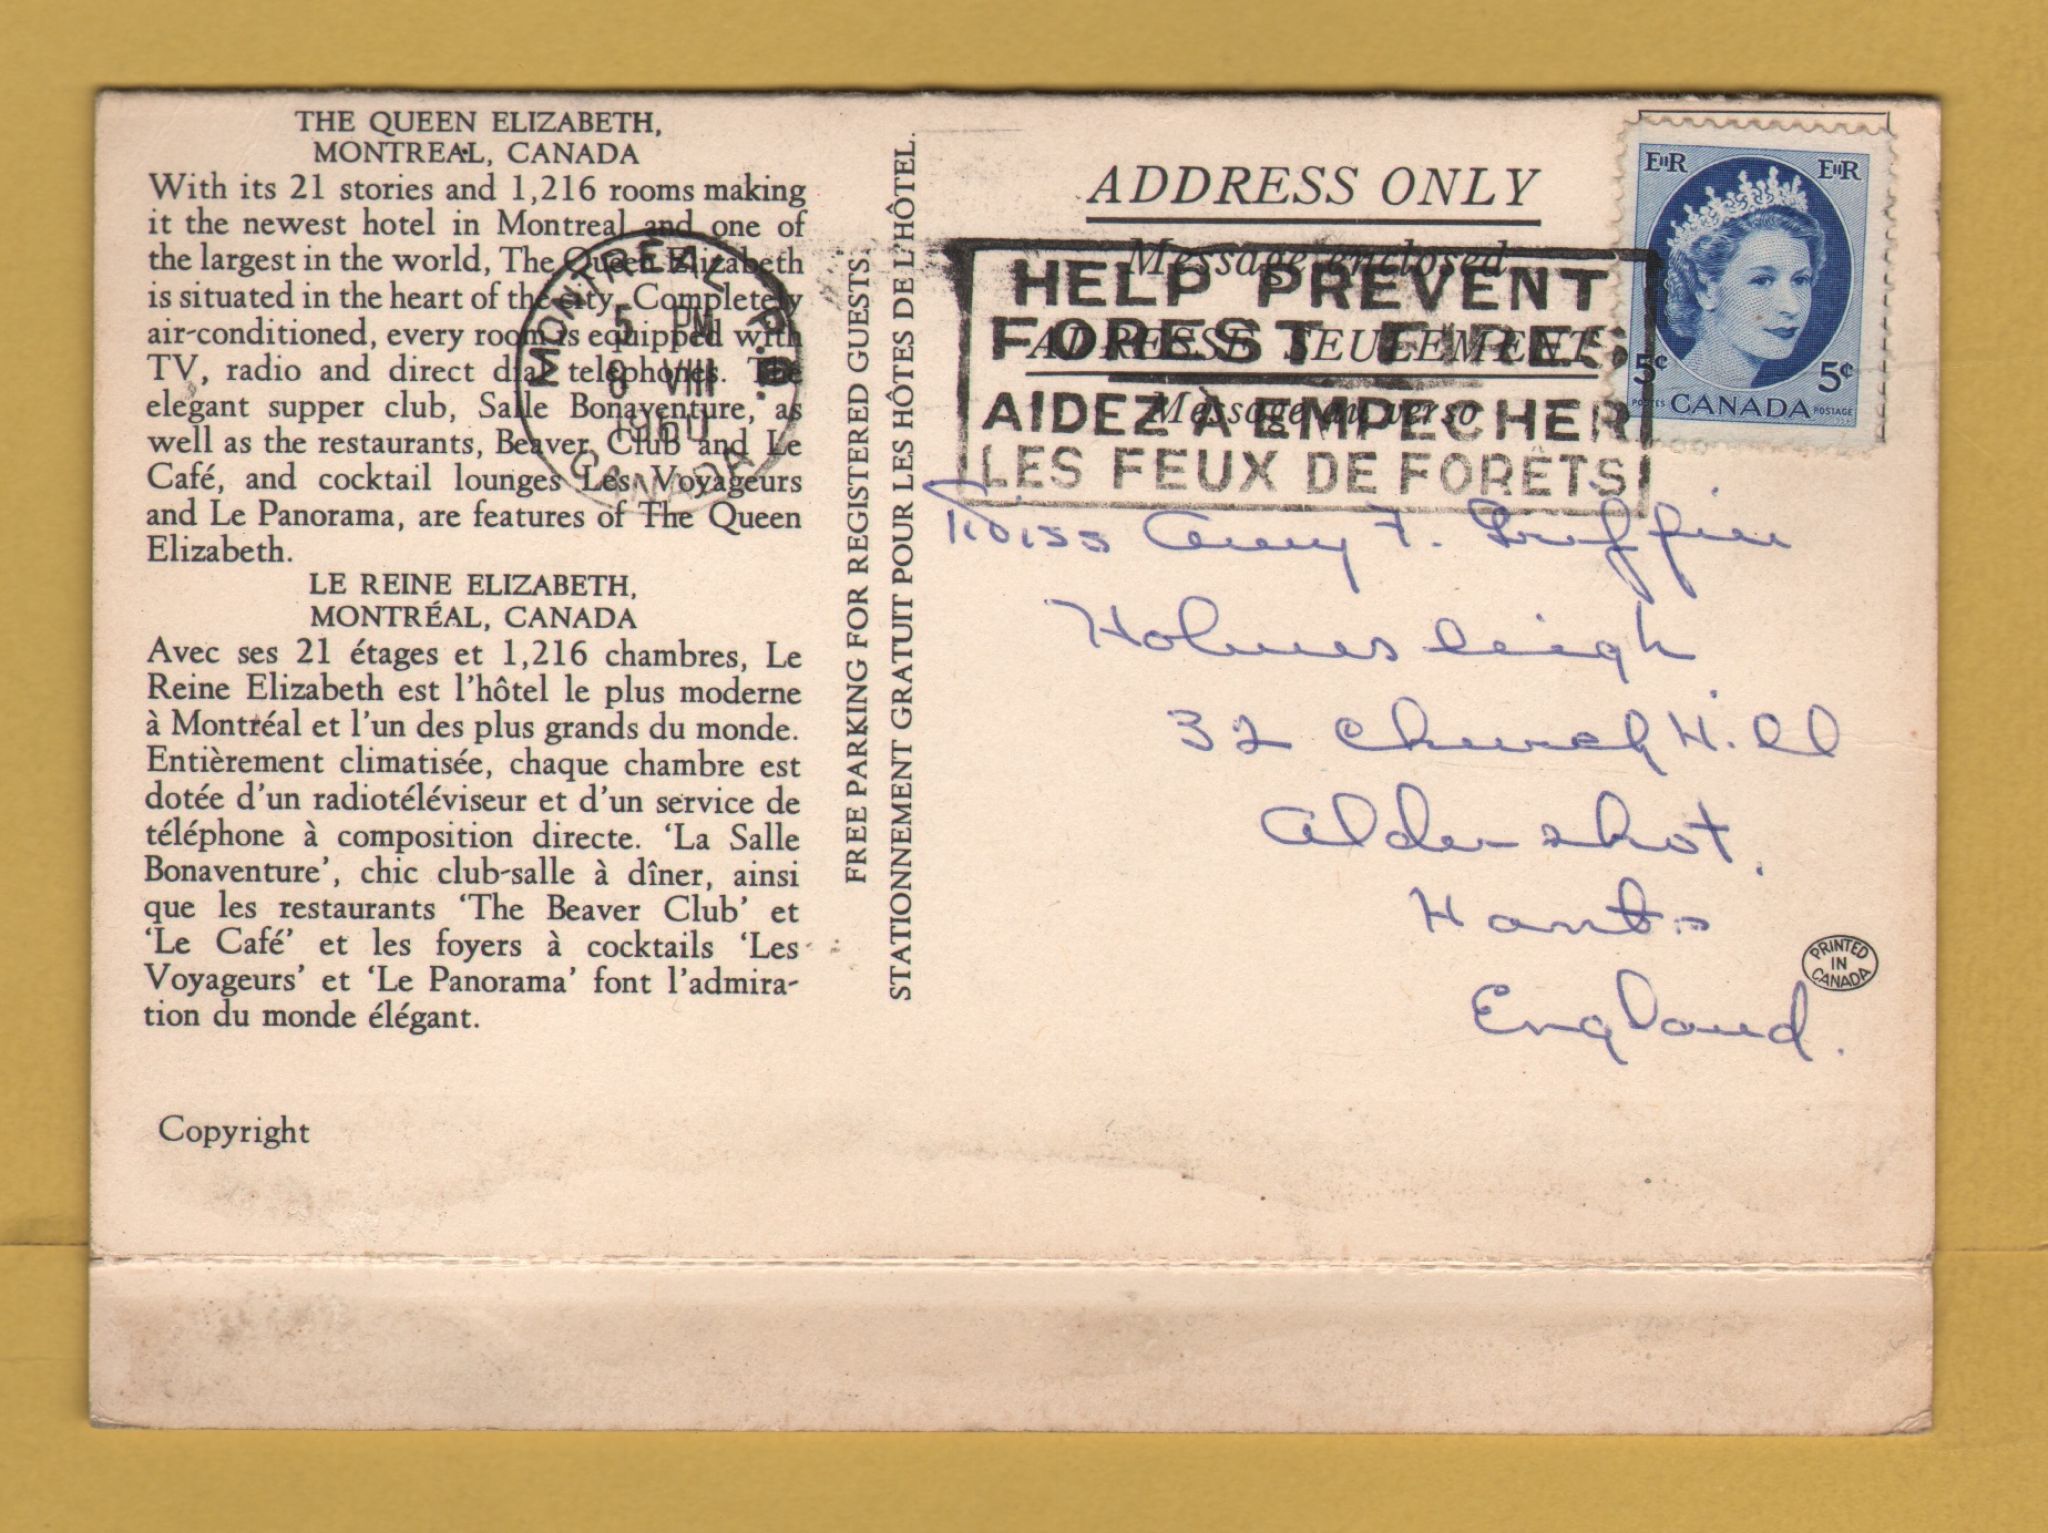 THE QUEEN ELIZABETH,
MONTREAL, CANADA
With its 21 stories and 1,216 rooms making
it the newest hotel in Montreal and one of
the largest in the world, The Queen Elizabeth
is situated in the heart of the city. Completely
air-conditioned, every room is equipped with
TV, radio and direct dial telephones. The
elegant supper club, Salle Bonaventure, as
well as the restaurants, Beaver Club and Le
Café, and cocktail lounges Les Voyageurs
and Le Panorama, are features of The Queen
Elizabeth.
LE REINE ELIZABETH,
MONTRÉAL, CANADA
Avec ses 21 étages et 1,216 chambres, Le
Reine Elizabeth est l'hôtel le plus moderne
à Montréal et l'un des plus grands du monde.
Entièrement climatisée, chaque chambre est
dotée d'un radiotéléviseur et d'un service de
téléphone à composition directe. 'La Salle
Bonaventure', chic club-salle à dîner, ainsi
que les restaurants 'The Beaver Club' et
'Le Café' et les foyers à cocktails 'Les
Voyageurs' et 'Le Panorama' font l'admira-
tion du monde élégant.
Copyright
MONTREAL P.Q.
5 PM
8 VIII
1960
CANADA
FREE PARKING FOR REGISTERED GUESTS.
STATIONNEMENT GRATUIT POUR LES HÔTES DE L'HÔTEL.
ADDRESS ONLY
Message enclosed
ADRESSE SEULEMENT
Message au verso
HELP PREVENT
FOREST FIRES
AIDEZ À EMPÊCHER
LES FEUX DE FORÊTS
EIIR EIIR
5¢ 5¢
POSTES CANADA POSTAGE
Miss Amy F. Griffin
Holmesleigh
32 Church Hill
Aldershot.
Hants
England.
PRINTED
IN
CANADA